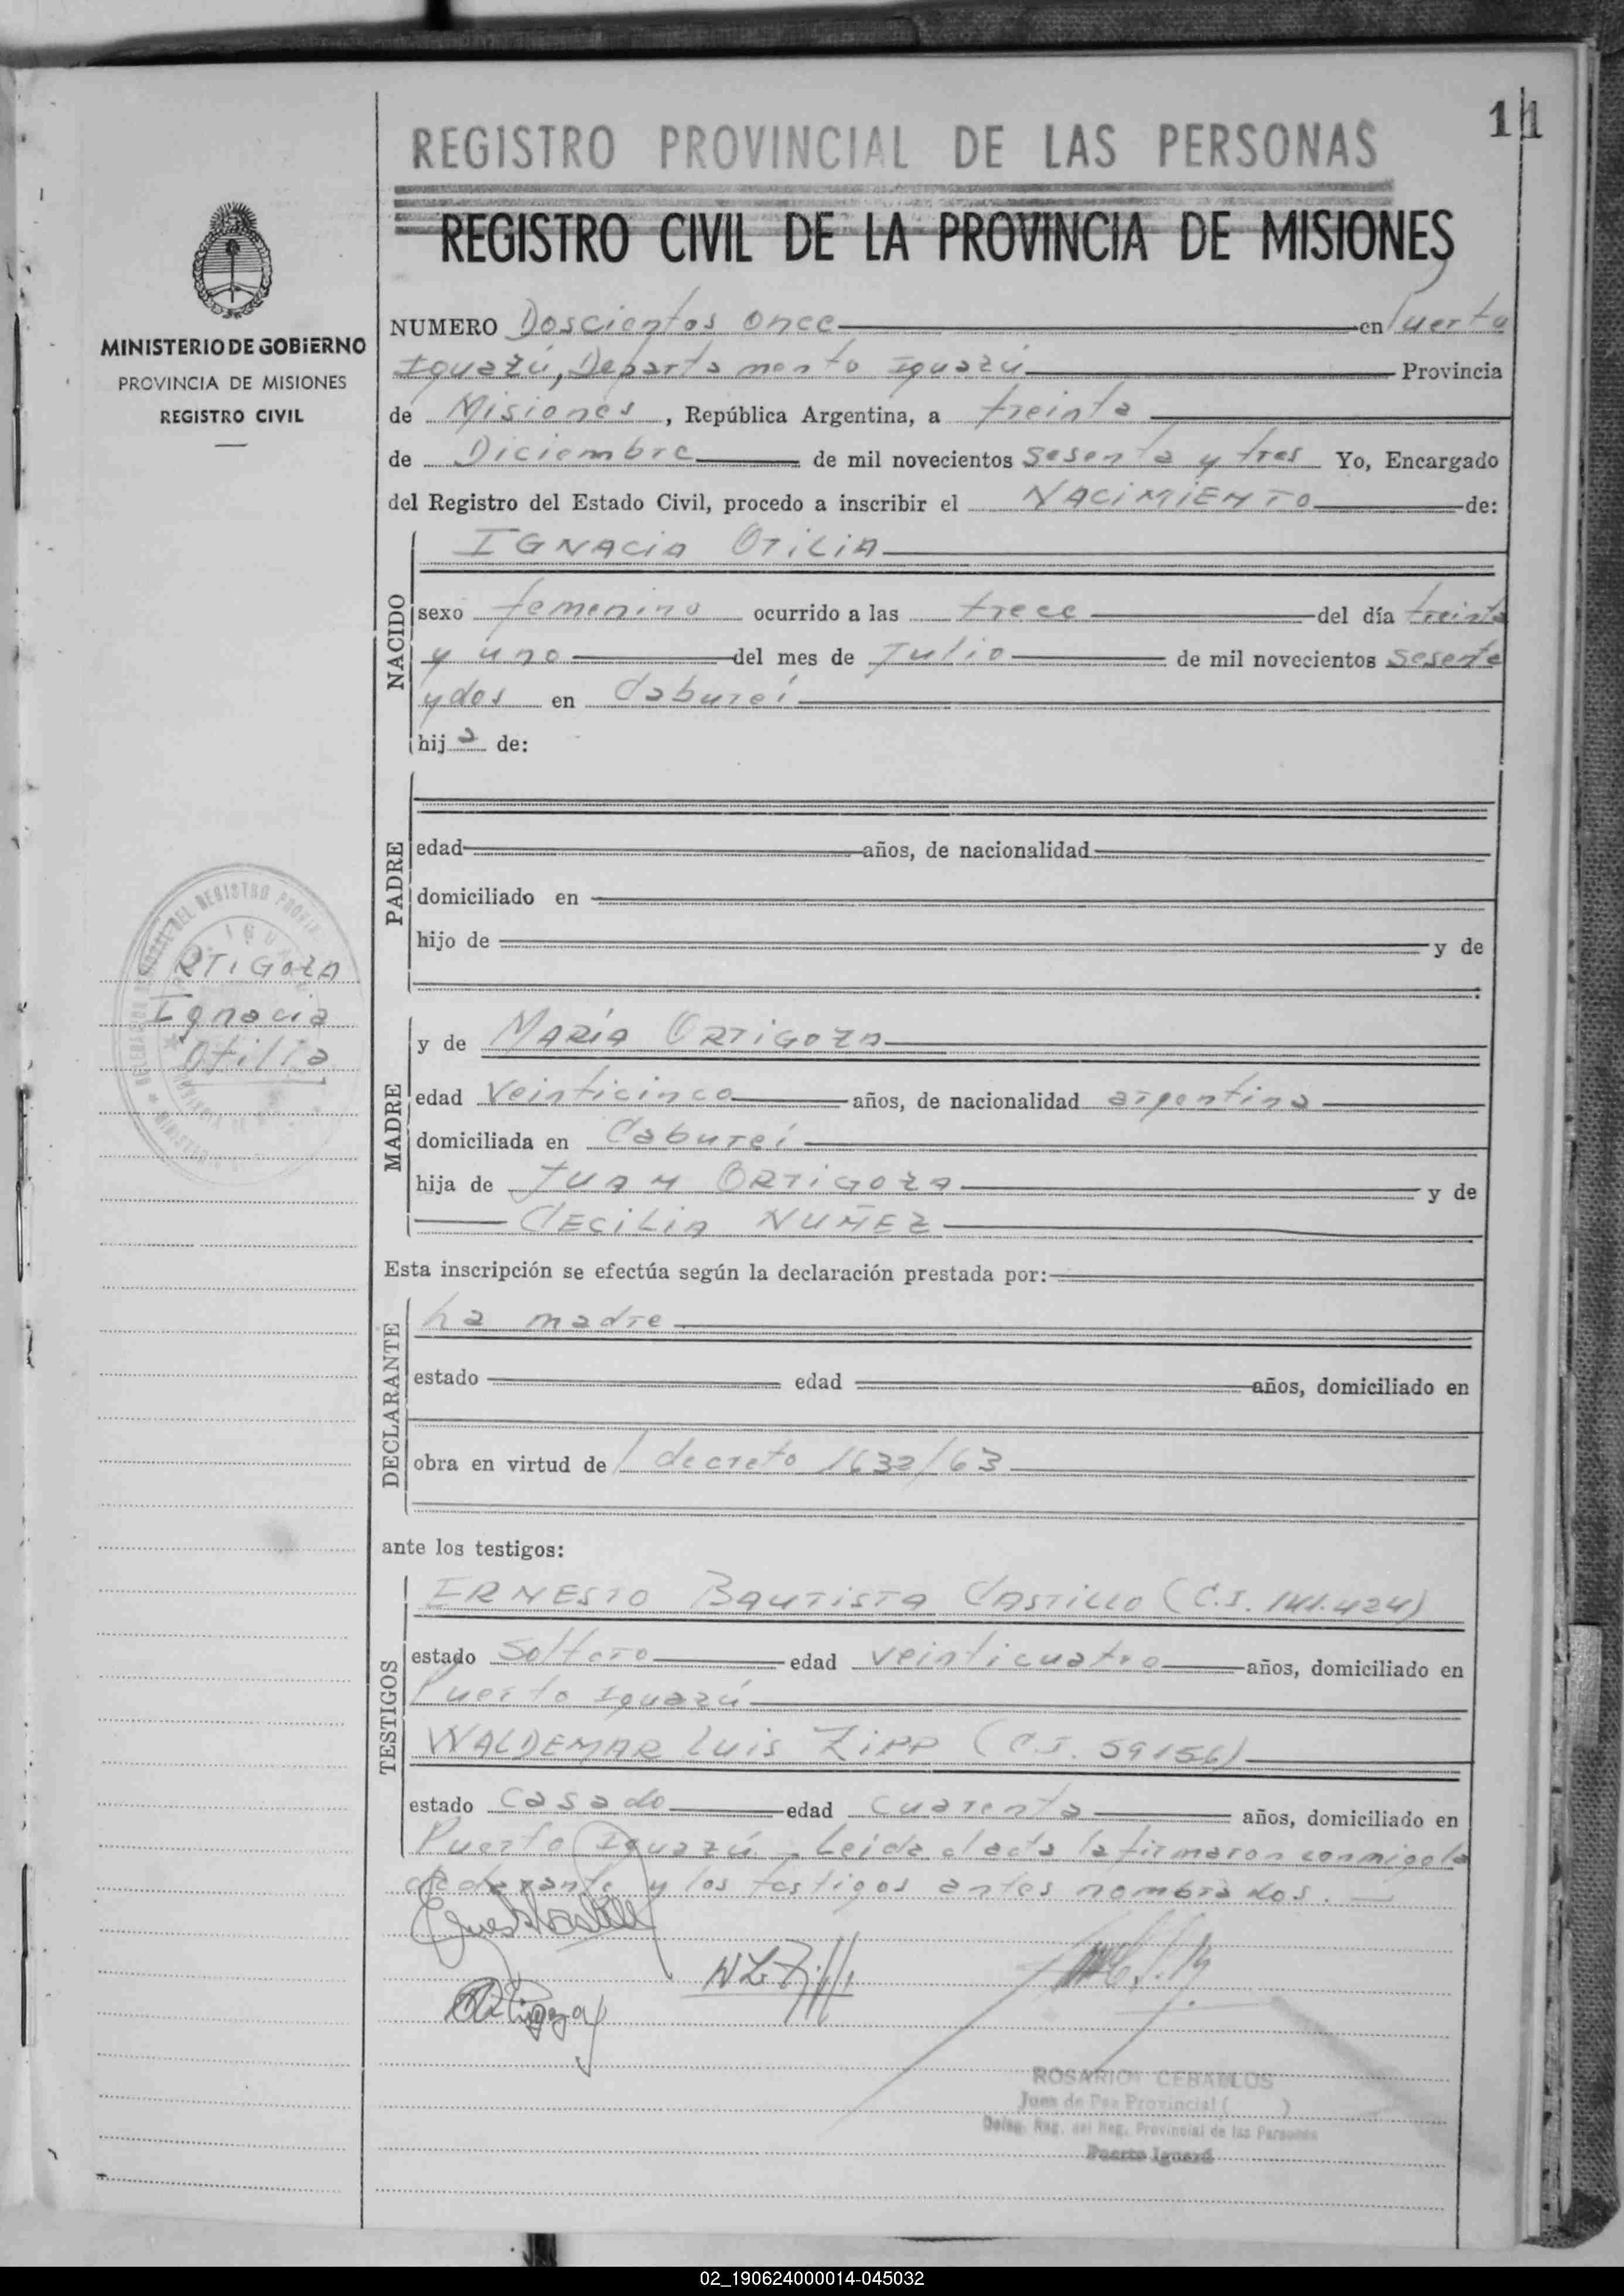 11
REGISTRO PROVINCIAL DE LAS PERSONAS
REGISTRO CIVIL DE LA PROVINCIA DE MISIONES
MINISTERIO DE GOBIERNO
PROVINCIA DE MISIONES
REGISTRO CIVIL
NUMERO Doscientos once en Puerto
Iguazú, Departamento Iguazú Provincia
de Misiones, República Argentina, a treinta
de Diciembre de mil novecientos sesenta y tres Yo, Encargado
del Registro del Estado Civil, procedo a inscribir el NACIMIENTO de:
NACIDO
IGNACIA OTILIA
sexo femenino ocurrido a las trece del día treinta
y uno del mes de Julio de mil novecientos sesenta
y dos en Cabureí
hij a de:
PADRE
edad años, de nacionalidad
domiciliado en
hijo de y de
RTIGOZA
Ignacia
Otilia
MADRE
y de MARÍA ORTIGOZA
edad veinticinco años, de nacionalidad argentina
domiciliada en Cabureí
hija de JUAN ORTIGOZA y de
CECILIA NUÑEZ
Esta inscripción se efectúa según la declaración prestada por:
DECLARANTE
La madre
estado edad años, domiciliado en
obra en virtud de decreto 1632/63
ante los testigos:
TESTIGOS
ERNESTO BAUTISTA CASTILLO (C.I. 141.424)
estado soltero edad veinticuatro años, domiciliado en
Puerto Iguazú
WALDEMAR LUIS ZIPP (C.I. 59156)
estado casado edad cuarenta años, domiciliado en
Puerto Iguazú. Leída el acta la firmaron conmigo la
declarante y los testigos antes nombrados.
Ortigoza
ROSARIO CEBALLOS
Juez de Paz Provincial ( )
Deleg. Reg. del Reg. Provincial de las Personas
Puerto Iguazú
02_190624000014-045032